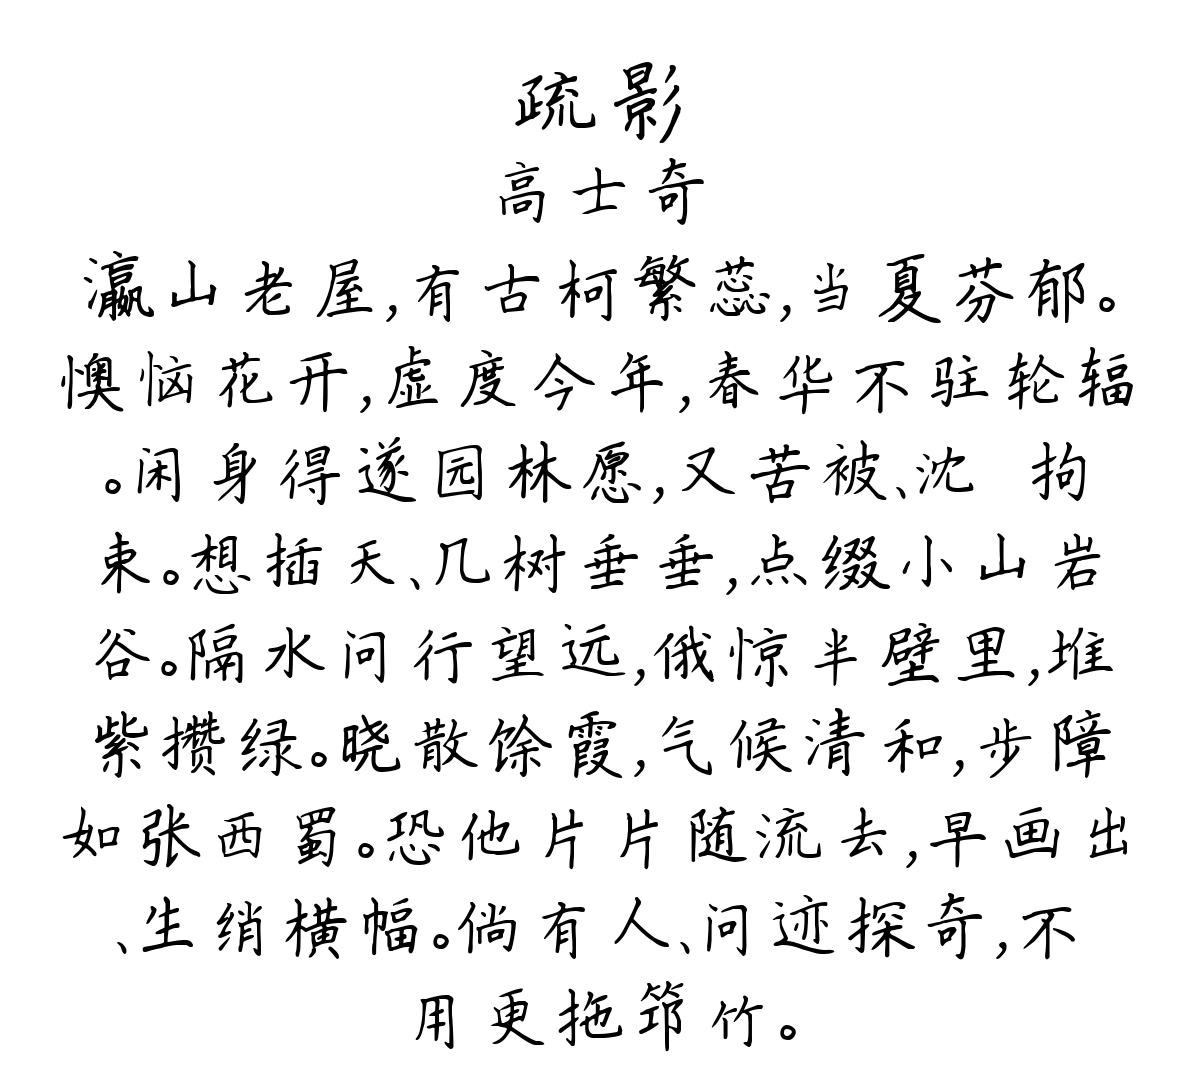 疏影
高士奇
瀛山老屋,有古柯繁蕊,当夏芬郁。
懊恼花开,虚度今年,春华不驻轮辐
。闲身得遂园林愿,又苦被、沈 拘
束。想插天、几树垂垂,点缀小山岩
谷。隔水问行望远,俄惊半壁里,堆
紫攒绿。晓散馀霞,气候清和,步障
如张西蜀。恐他片片随流去,早画出
、生绡横幅。倘有人、问迹探奇,不
用更拖筇竹。